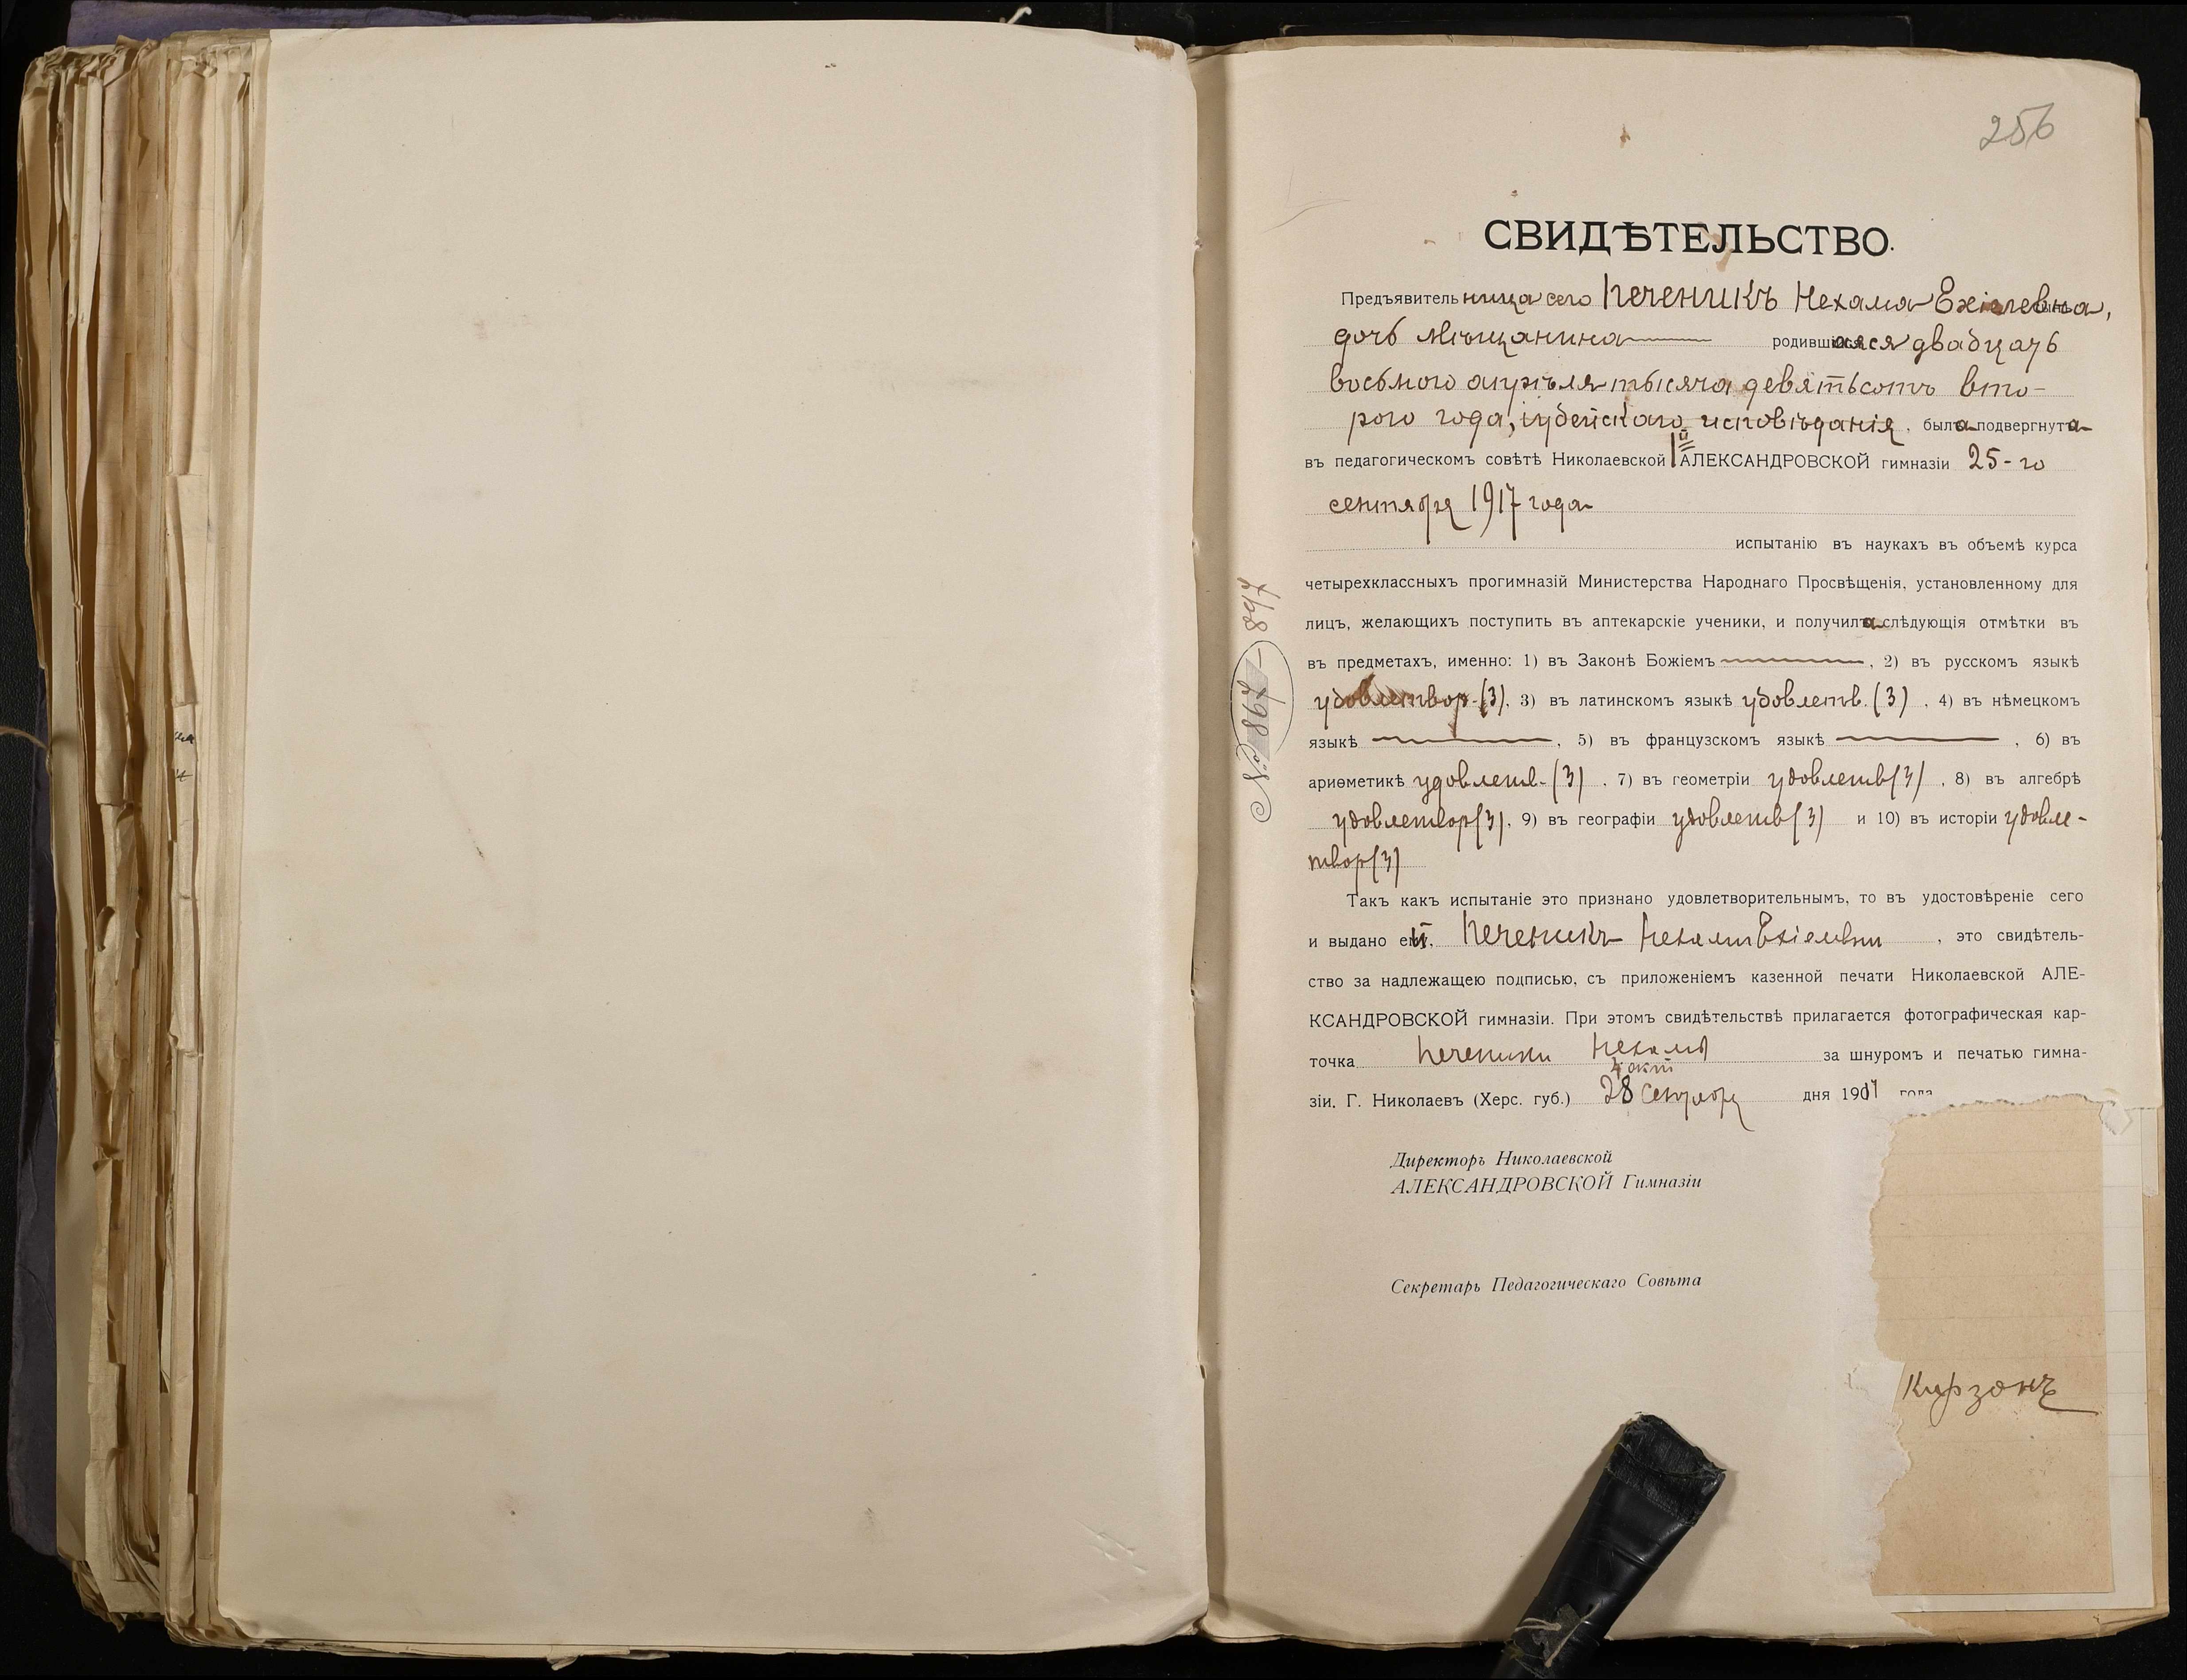 256
СВИДѢТЕЛЬСТВО.
Предъявительница сего Печеникъ Нехама Ехіелевна,
дочь мѣщанина родившаяся двадцать
восьмого апрѣля тысяча девятьсотъ вто-
рого года, іудейскаго исповѣданія, была подвергнута
въ педагогическомъ совѣтѣ Николаевской Iй АЛЕКСАНДРОВСКОЙ гимназіи 25-го
сентября 1917 года
испытанію въ наукахъ въ объемѣ курса
четырехклассныхъ прогимназій Министерства Народнаго Просвѣщенія, установленному для
лицъ, желающихъ поступить въ аптекарскіе ученики, и получила слѣдующія отмѣтки въ
въ предметахъ, именно: 1) въ Законѣ Божіемъ ———, 2) въ русскомъ языкѣ
удовлетвор-(3), 3) въ латинскомъ языкѣ удовлетв. (3), 4) въ нѣмецкомъ
языкѣ ———, 5) въ французскомъ языкѣ ———, 6) въ
ариѳметикѣ удовлетв-(3), 7) въ геометріи удовлетв(3), 8) въ алгебрѣ
удовлетвор(3), 9) въ географіи удовлетв(3) и 10) въ исторіи удовле-
твор(3)
Такъ какъ испытаніе это признано удовлетворительнымъ, то въ удостовѣреніе сего
и выдано ей, Печеникъ Нехамѣ Ехіелевнѣ, это свидѣтель-
ство за надлежащею подписью, съ приложеніемъ казенной печати Николаевской АЛЕ-
КСАНДРОВСКОЙ гимназіи. При этомъ свидѣтельствѣ прилагается фотографическая кар-
точка Печеники Нехамы за шнуромъ и печатью гимна-
4 окт
зіи. Г. Николаевъ (Херс. губ.) 28 сентября дня 1917 года
Директоръ Николаевской
АЛЕКСАНДРОВСКОЙ Гимназіи
Секретарь Педагогическаго Совѣта
Кирзонъ
№ 867 — 8917